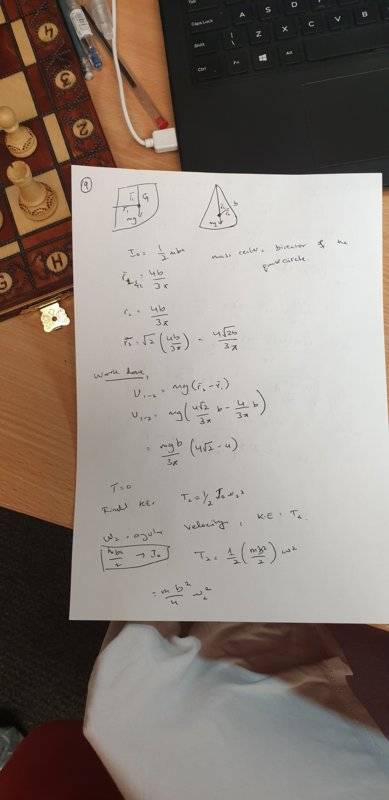 Caps Lock
A
S
Z
X
D
Shift
C
Ctrl
Fn
Alt
4
3
G
H
9
r̄₁ G
r̄₁
mg
b
r̄₂
mg
I₀ = 1/2 mb² mass center, bisector of the
quarter circle.
= 4b/3π
r₁ = 4b/3π
r̄₂ = √2 (4b/3π) = 4√2b/3π
Work done,
U₁₋₂ = mg(r̄₂ - r̄₁)
U₁₋₂ = mg(4√2/3π b - 4/3π b)
= mgb/3π (4√2 - 4)
T = 0
Final K.E. T₂ = 1/2 I₀ ω₂²
ω₂ = velocity, K.E = T₂
mb²/2 → I₀ T₂ = 1/2 (mb²/2) ω²
= mb²/4 ω₂²